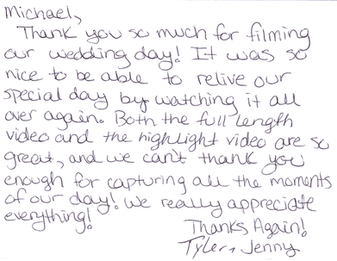 Michael,
Thank you so much for filming
our wedding day! It was so
nice to be able to relive our
special day by watching it all
over again. Both the full length
video and the highlight video are so
great, and we can't thank you
enough for capturing all the moments
of our day! We really appreciate
everything!
Thanks Again!
Tyler + Jenny